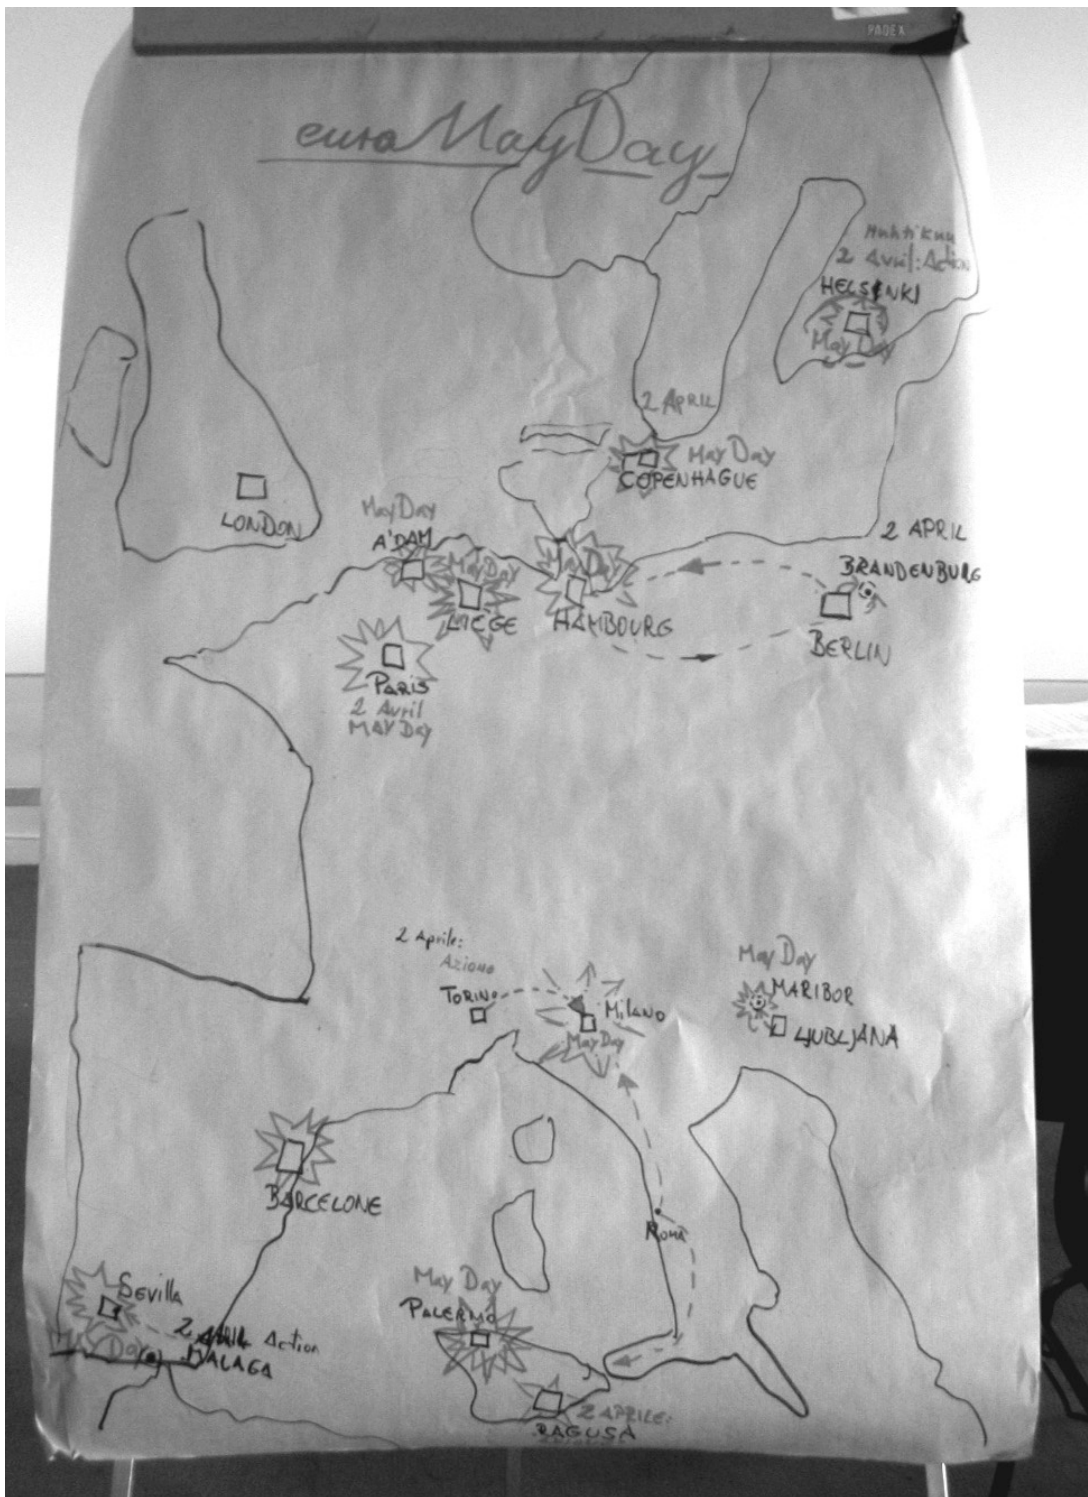 PADEX
euro MayDay
Huhtikuu
2 Avril: Action
HELSINKI
May Day
2 APRIL
May Day
COPENHAGUE
LONDON
May Day
A'DAM
May Day
LIEGE
May Day
HAMBOURG
2 APRIL
BRANDENBURG
BERLIN
PARIS
2 Avril
MAY DAY
2 Aprile:
Azione
TORINO
MILANO
May Day
May Day
MARIBOR
LJUBLJANA
BARCELONE
ROMA
SEVILLA
MAY Day
2 APRIL Action
MALAGA
May Day
PALERMO
2 APRILE:
RAGUSA